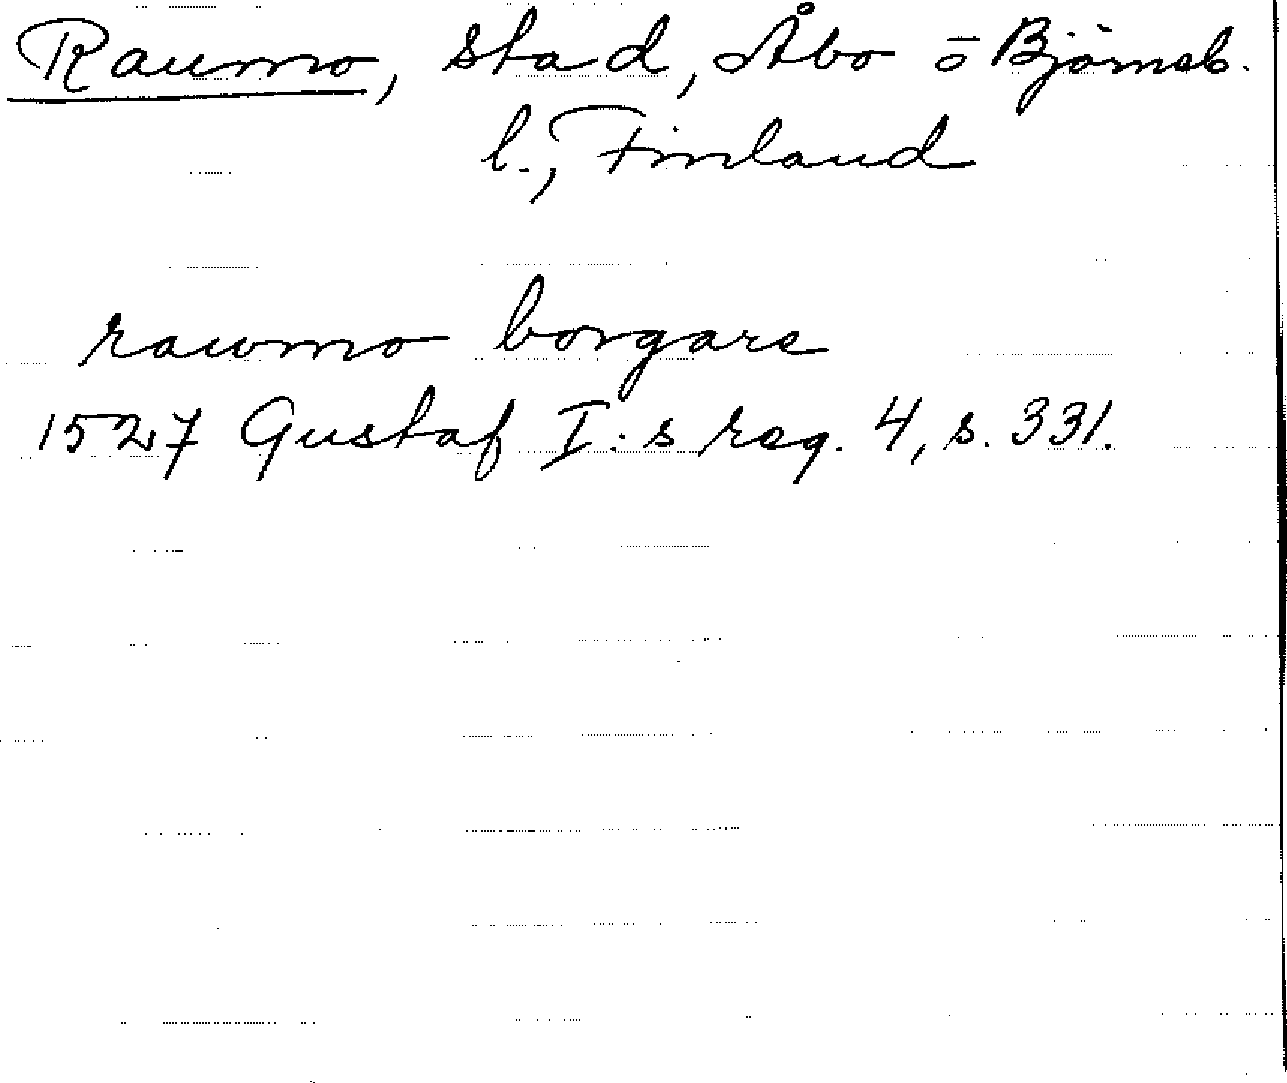 Raumo, stad, Åbo o Björneb.
l., Finland
rawmo borgare
1527 Gustaf I:s reg. 4, s. 331.